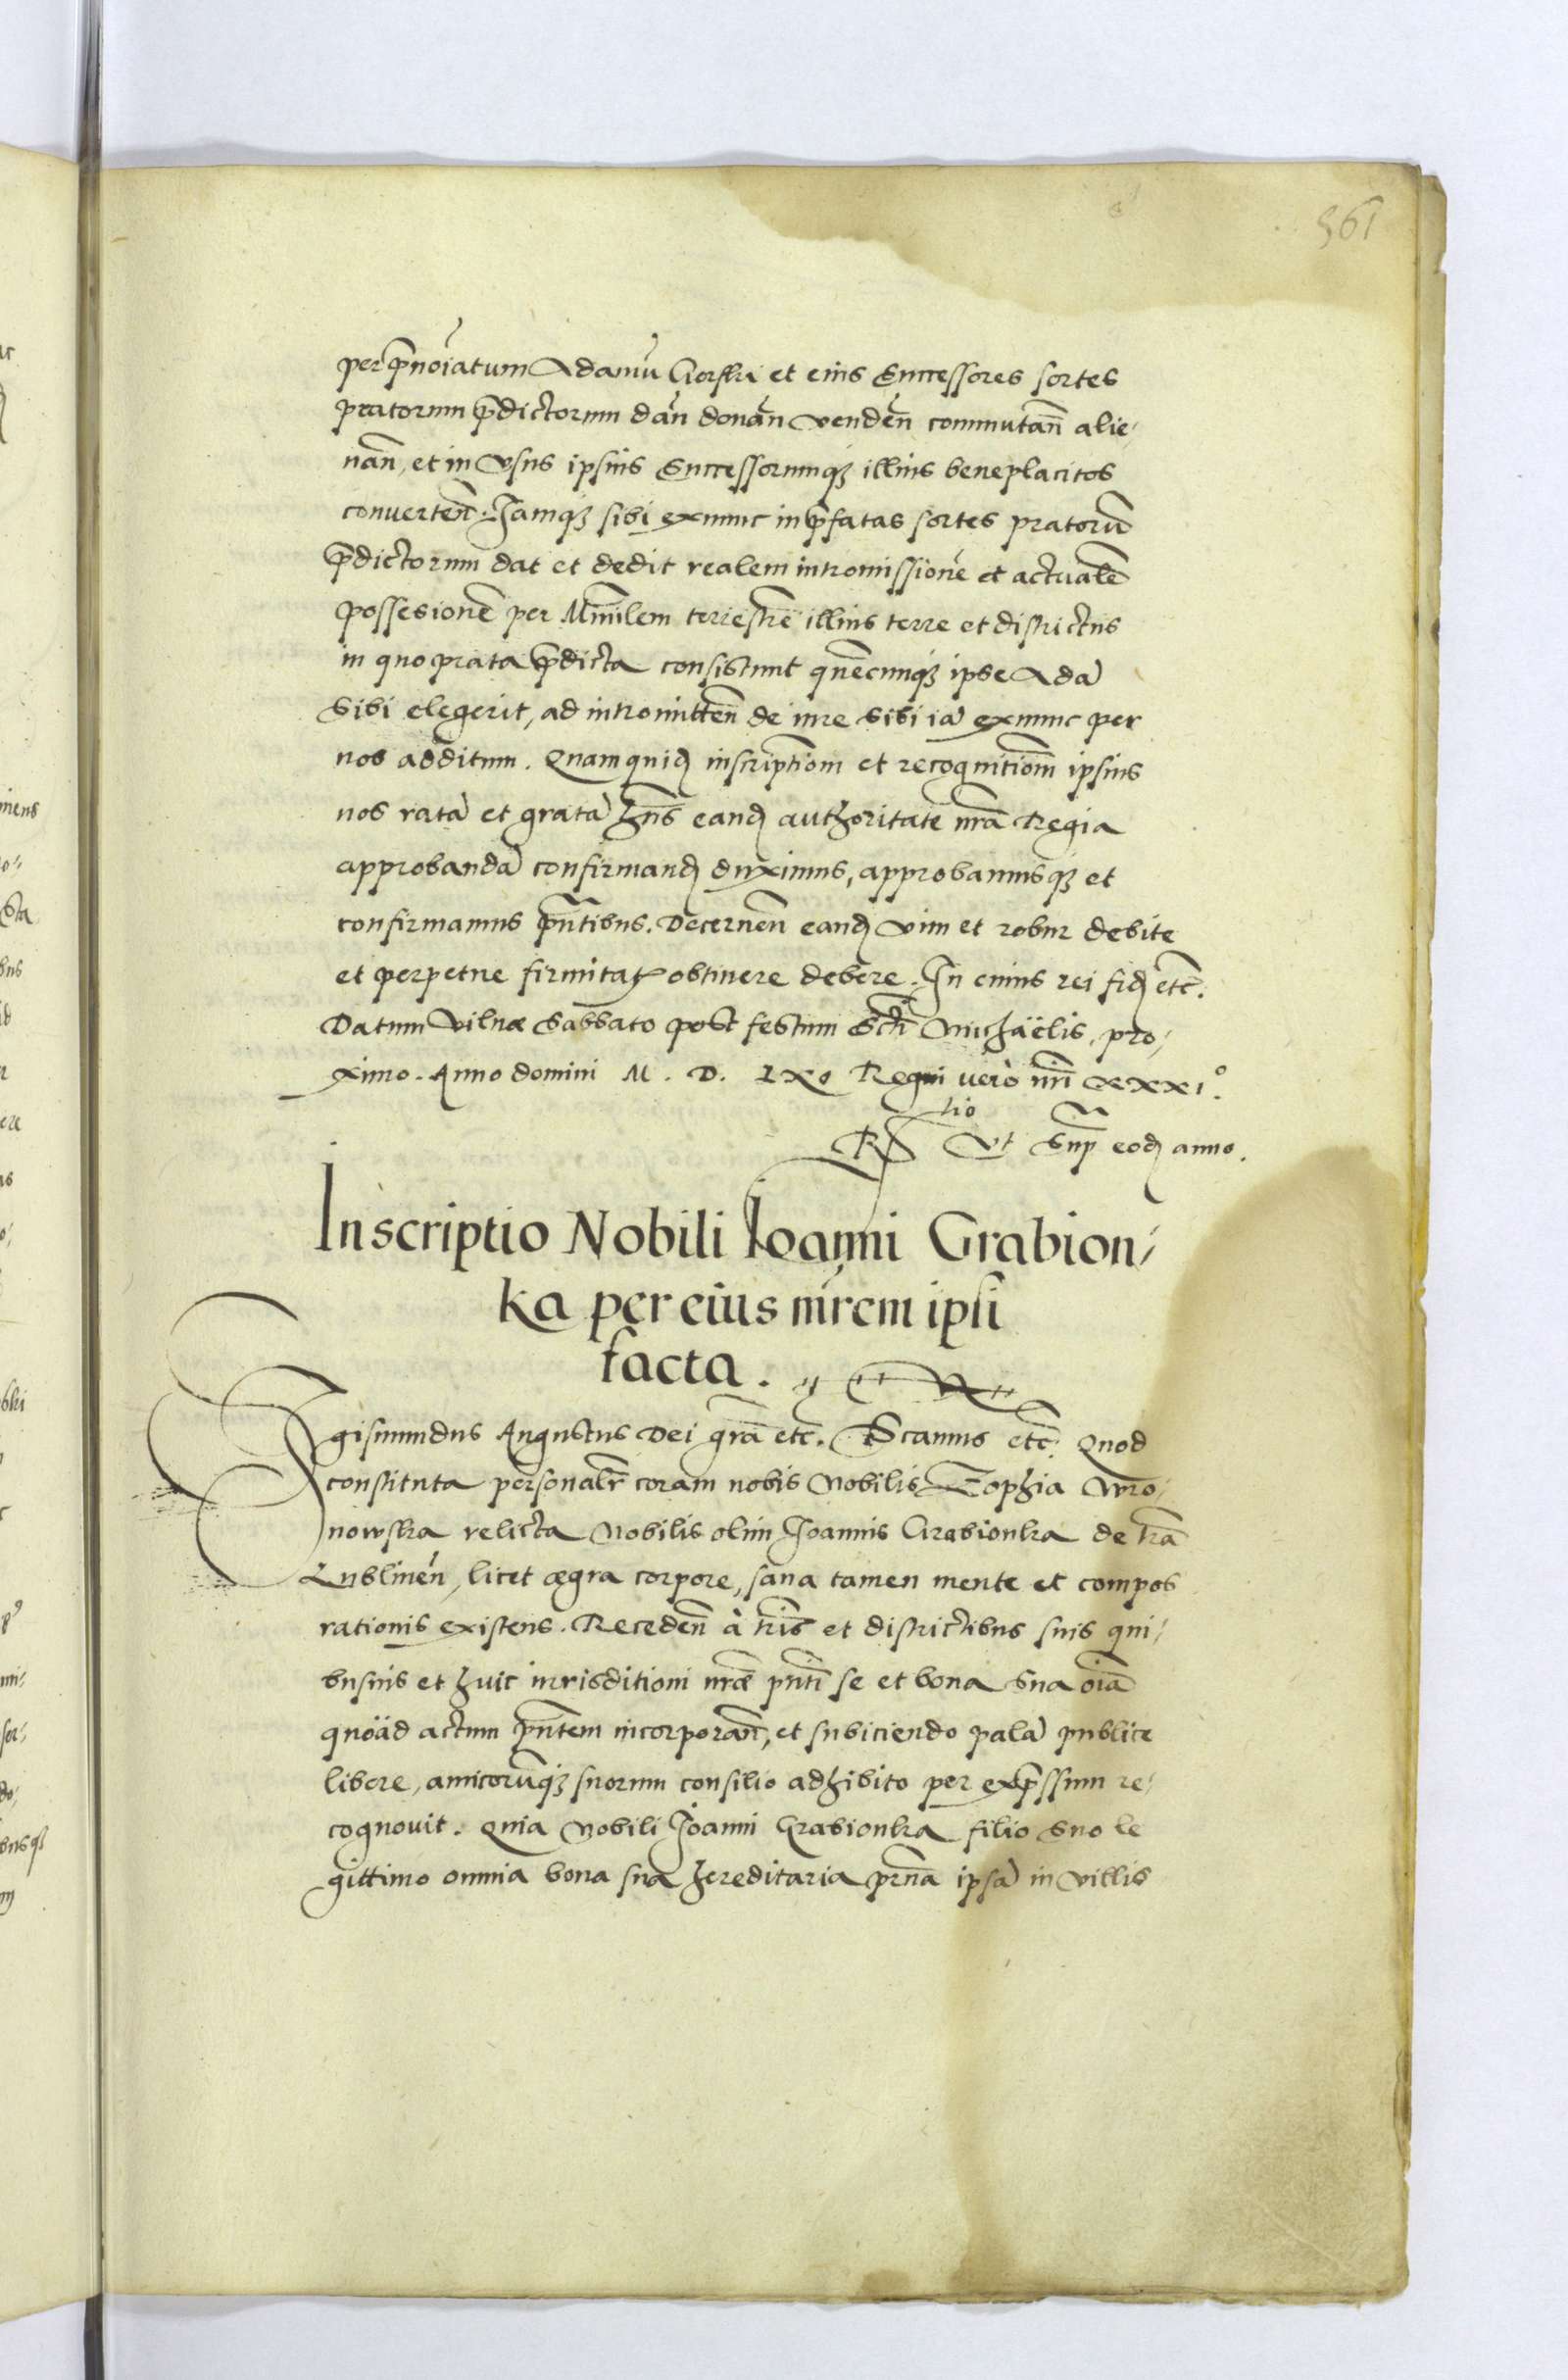 561
per p̄noīatum Adamū Gorski et eius Successores sortes
pratorum p̄dictorum dān̄ donān̄ vendēn̄ commutān̄ alie-
nān̄, et in vsus ipsius Successorumq; illius beneplacitos
convertēn̄. Jamq; sibi exnunc in p̄fatas sortes pratorū
p̄dictorum dat et dedit realem intromissionē et actualē
possesionē per Mīnīlem terrestrē illius terre et districtus
in quo prata p̄dicta consistunt quēcunq; ipse Adā
Sibi elegerit, ad intromittēn̄ de iure sibi iā exnunc per
nos additum. Quamquid̄ inscriptiōm et recognitiōm ipsius
nos ratā et gratā hn̄s eand̄ authoritate n̄ra Regia
approbandā confirmand̄ duximus, approbamusq; et
confirmamus p̄ntibus. Decernēn̄ eand̄ vim et robur debite
et perpetue firmitat̄ obtinere debere. In cuius rei fid̄ etc̄.
Datum Vilnæ Sabbato post festum Sctī Michaëlis, pro-
ximo. Anno domini M. D. LXo Regni verò nr̄i xxxi°.
R̄tio Vt Sup̄ eod̄ anno.
Inscriptio Nobili Ioanni Grabion-
ka per eius mr̄em ipsi
facta.
Sigismundus Augustus Dei gr̄a etc̄. Scamus etc̄. Quod
constituta personalr̄ coram nobis Nobilis Zophia Wro-
nowska relicta Nobilis olim Joannis Grabionka de tr̄a
Lublinēn̄, licet ægra corpore, sana tamen mente et compos
rationis existens. Recedēn̄ à tr̄is et districtibus suis qui-
busuis et huic iurisditioni nr̄æ pn̄ti se et bona sua oīa
quoäd actum pn̄tem incorporān̄, et subiciendo palā publice
libere, amicorūq; suorum consilio adhibito per exp̄ssum re-
cognouit. Quia Nobili Joanni Grabionka filio suo le
gittimo omnia bona sua hereditaria pr̄na ipsā in villis